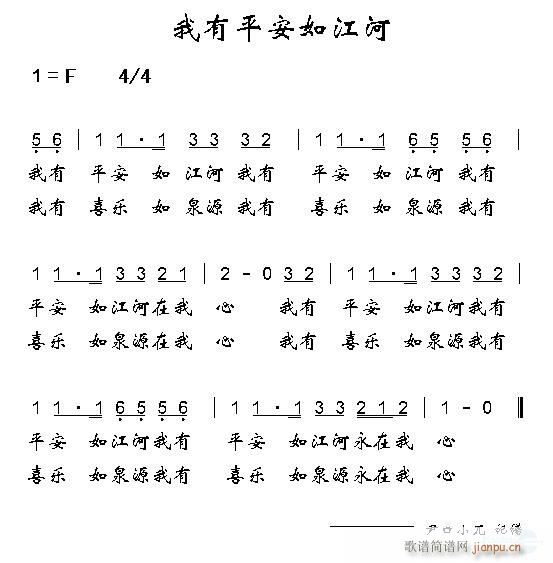 我有平安如江河
1=F 4/4
5 6 | 1 1·1 3 3 3 2 | 1 1·1 6 5 5 6 |
我有 平安 如 江河 我有 平安 如 江河 我有
我有 喜乐 如 泉源 我有 喜乐 如 泉源 我有
1 1·1 3 3 2 1 | 2 - 0 3 2 | 1 1·1 3 3 3 2 |
平安 如江河在我 心 我有 平安 如江河我有
喜乐 如泉源在我 心 我有 喜乐 如泉源我有
1 1·1 6 5 5 6 | 1 1·1 3 3 2 1 2 | 1 - 0
平安 如江河我有 平安 如江河永在我 心
喜乐 如泉源我有 喜乐 如泉源永在我 心
歌谱简谱网 jianpu.cn